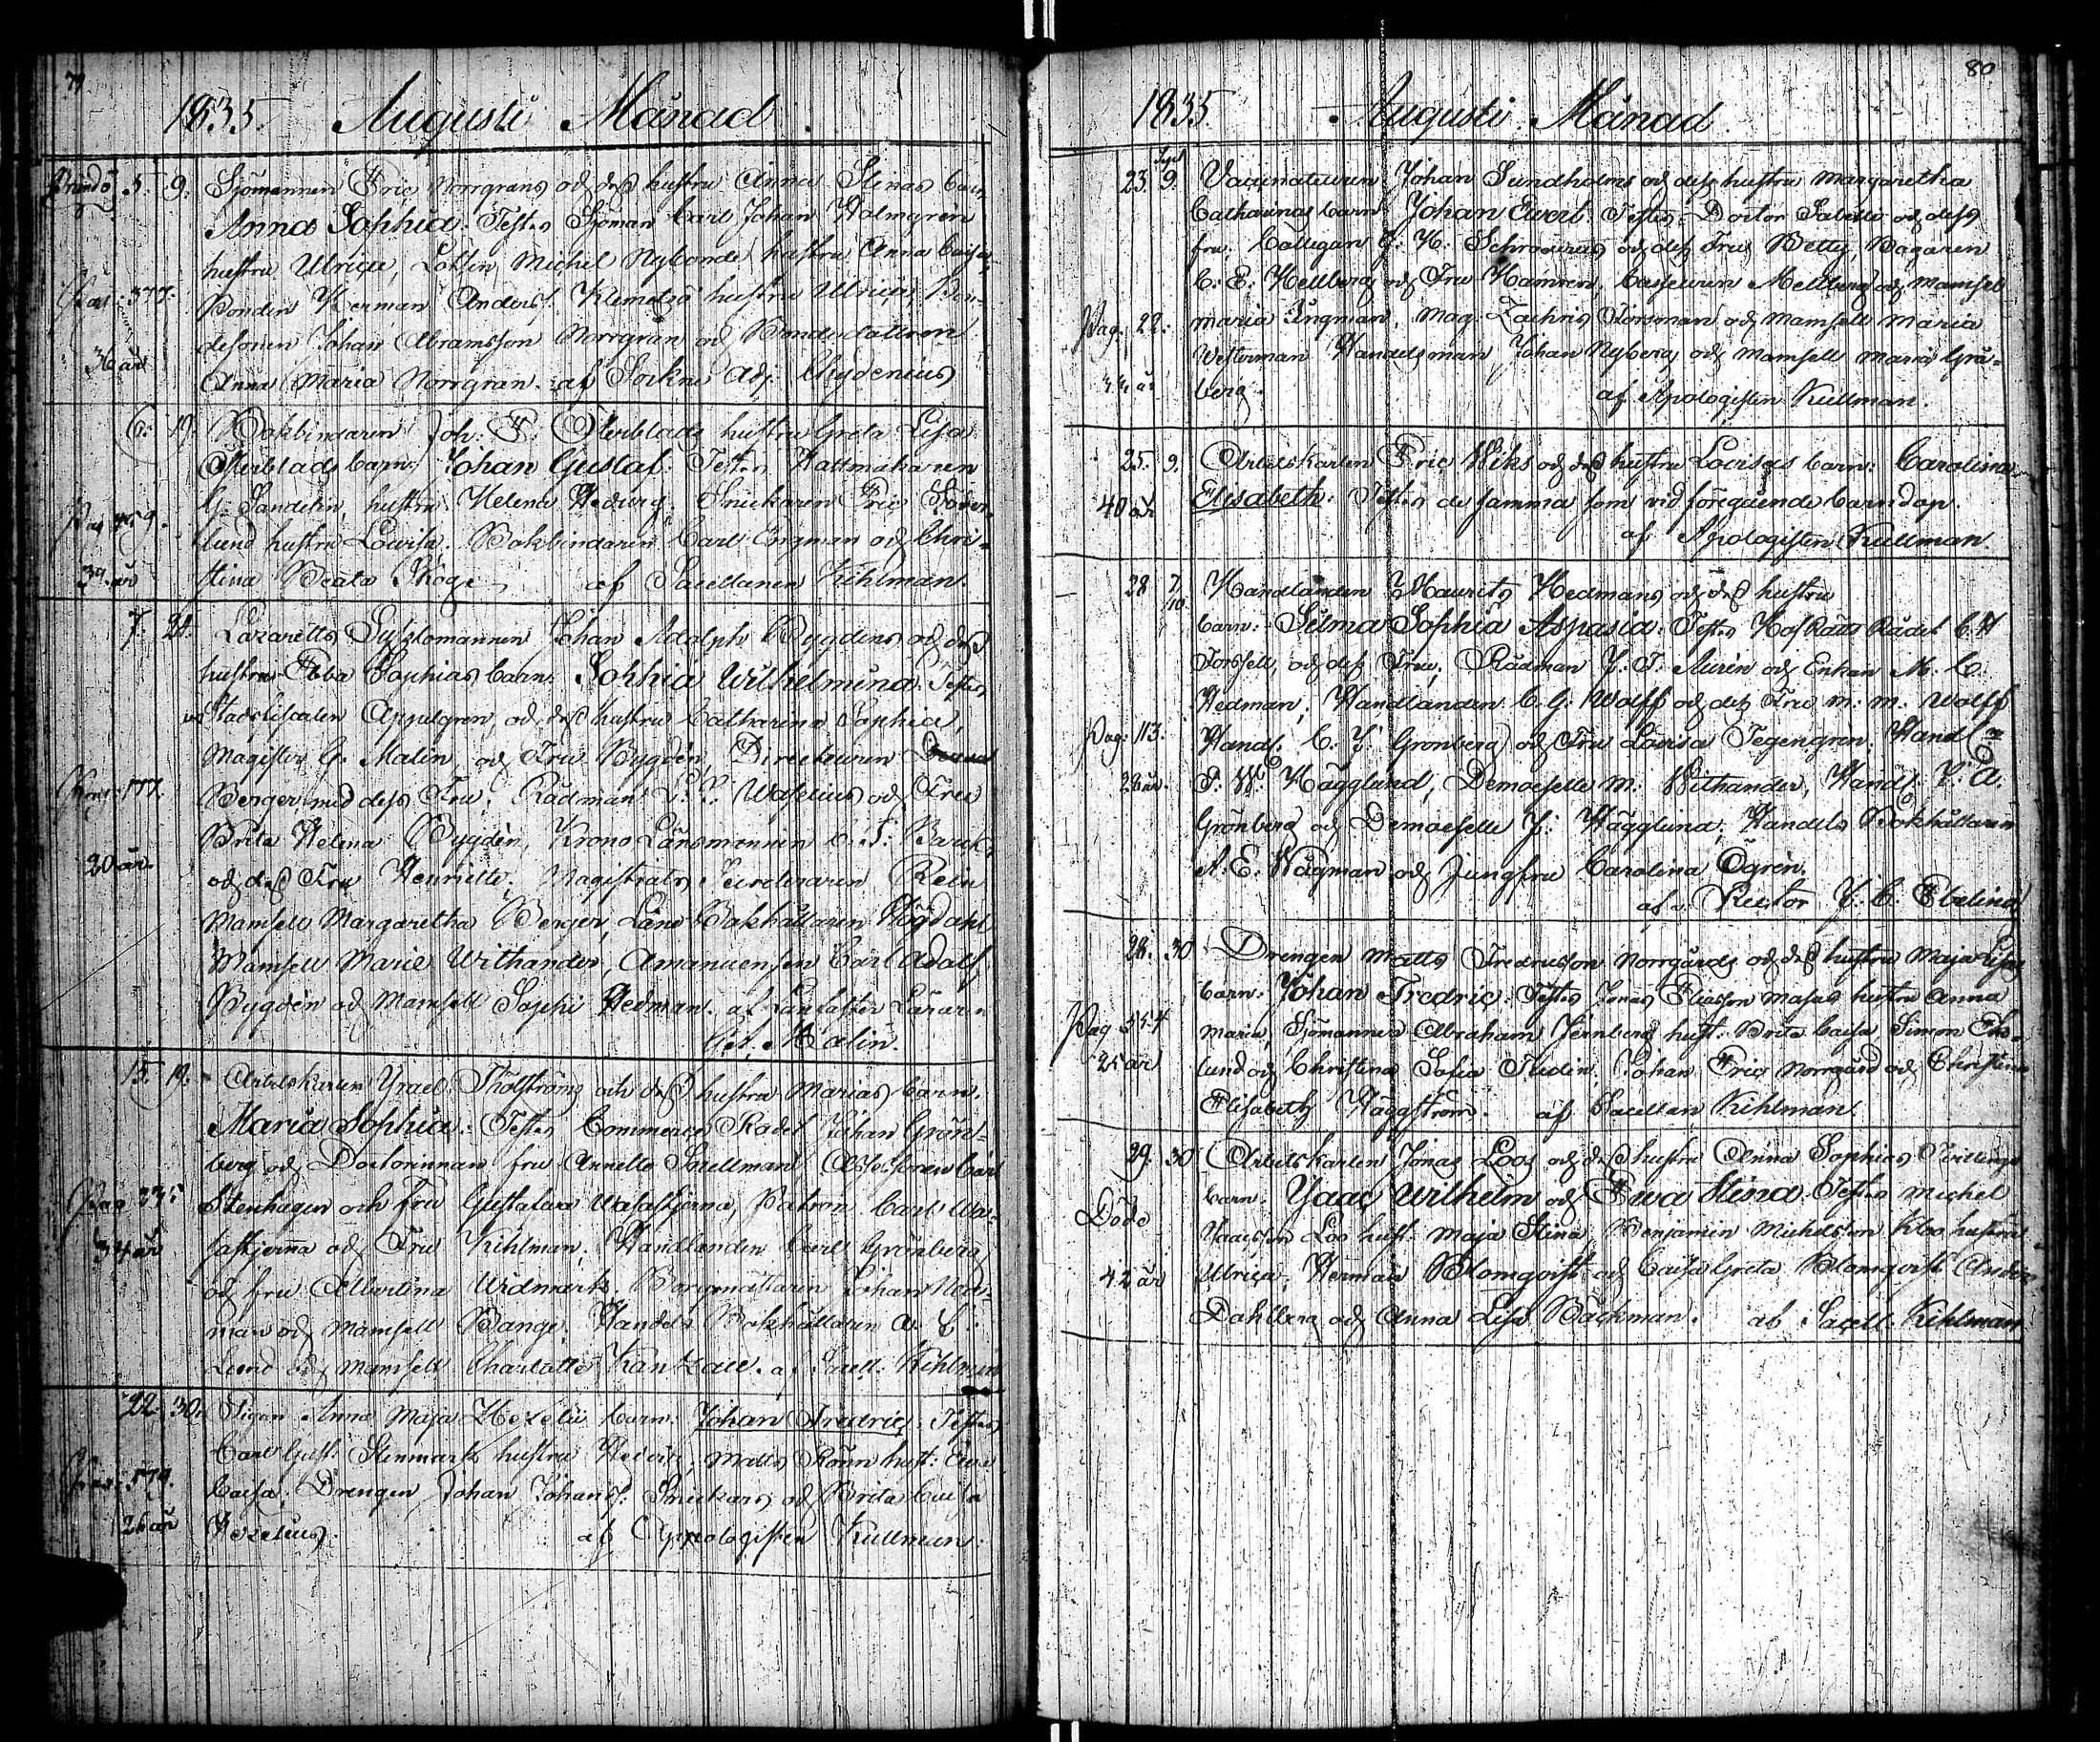 79
1835. Augusti Månad.
Brändö 5. 9. Sjömannen Eric Norrgrans och dess hustru Anna Stinas barn,
Anna Sophia. Testes Sjöman Carl Johan Holmgren
hustru Ulrica, Lotsen Michel Nylunds hustru Anna Caisa,
Pag: 377. Bonden Herman Anders. Klemetsö hustru Ulrica, Bon-
desonen Johan Abramsson Norrgran och Bondedottren
36 år Anna Maria Norrgran. af Sockne Adj. Chydenius
6. 19. Bokbindaren Joh. F. Österblads hustru Greta Lisa
Österblads barn, Johan Gustaf. Testes Hattmakaren
G. Sandelin, hustru Helena Hedvig, Snickaren Eric Söder-
Pag 459. lund hustru Lovisa. Bokbindaren Carl Engman och Chri-
39. år stina Beata Skoge af Sacellanen Kihlman.
7. 21. Lazaretts Sysslomannen Johan Adolph Bygdens och dess
hustru Ebba Sophias barn. Sophia Wilhelmina. Testes
Stadsfiscalen Appelgren, och dess hustru Catharina Sophia,
Magister G. Malin, och Fru Bygdén, Directeuren
Pag: 177. Berger med dess Fru, Rådman Waselius och Fru
Brita Helena Bygdén, Krono Länsmannen C. F. Barck,
20 år. och dess Fru Henriette, Magistrats Secreteraren Rein
Mamsell Margaretha Berger, Läns Bokhållaren Högdahl
Mamsell Marie Withander, Amanuensen Carl Adolf
Bygdén och Mamsell Sophi Hedman. af Lancaster Läraren
Gst. Malin.
15. 19. Arbetskarlen Ysrael Thölströms och dess hustru Marias barn,
Maria Sophia. Testes Commerce Rådet Johan Grön-
berg och Doctorinnan fru Annette Snellman, Assessoren Carl
Pag 235 Stenhagen och Fru Gustafava Wasastjerna, Patron Carl Wa-
34 år sastjerna och Fru Kihlman, Handlanden Carl Grönberg
och fru Albertina Widmark, Borgmästaren Johan
man och Mamsell Bange, Handels Bokhållaren A. E.
Lund och Mamsell Charlotte Kantzau. af Sacell: Kihlman
22. 30. Pigan Anna Maja Hezelii barn. Johan Fredric. Testes
Carl Gust. Stenmark hustru Hedvig, Matts Rönn hust: Eva
Pag: 579. Caisa, Drengen Johan Johans. Snickars och Brita Caisa
26 år Hezelius. af Apologisten Kullman.
80
1835. Augusti Månad
23. 9. Vaccinateuren Johan Sundholms och dess hustru Margaretha
Catharinas barn Johan Evert. Testes Doctor Sabelli och dess
fru, Collegan G. H. Schroderus och dess Fru Betty, Bagaren
C. E. Hellberg och Fru Hamren, Casseuren Mellberg och Mamsell
Pag: 22. Maria Ingman, Mag. Zachris Forsman och Mamsell Maria
Westerman Handelsman Johan Nyberg och Mamsell Maria Grå-
33 år berg. af Apologisten Kullman.
25. 9. Arbetskarlen Eric Wiks och dess hustru Lovisas barn: Carolina
40 år Elisabeth. Testes de samma som vid föregående barndop.
af Apologisten Kullman.
28 7/10 Handlanden Maurits Hedmans och dess hustru
barn: Selma Sophia Aspasia. Testes HofRätts Rådet C. H
Forssell, och dess Fru, Rådman J. F. Aurén och Enkan M. C.
Hedman, Handlanden C. G. Wolff och dess Fru M. M. Wolff
Pag: 113. Handl. C. J. Grönberg och Fru Lovisa Tegengren, Handl
28 år. P. W. Hägglund, Demoeselle M. Withander, Handl. J. A.
Grönberg och Demoeselle J. Hägglund, Handels Bokhållaren
A. E. Wägman och Jungfru Carolina Ögren.
af Rector J. C. Ebeling
28. 30 Drengen Matts Fredricsson Norrgårds och dess hustru Maja Lisas
barn: Johan Fredric. Testes Jonas Eliasson Masas hustru Anna
Pag 554 Maria, Sjömannen Abraham Jernberg hust. Brita Caisa, Simon Ek-
25 år lund och Christina Sofia Thidin, Johan Eric Norrgård och Christina
Elisabeth Häggström. af Sacellan Kihlman.
29. 30 Arbetskarlen Jonas Loos och dess hustru Anna Sophias Tvillinge
barn, Ysaac Wilhelm och Ewa Stina. Testes Michel
Döde Ysacsson Loo hust. Maja Stina, Benjamin Michelsson Kloo hustru
42 år Ulrica, Herman Blomqvist och Caisa Greta Blomqvist Anders
Dahlberg och Anna Lisa Backman. af Sacell. Kihlman